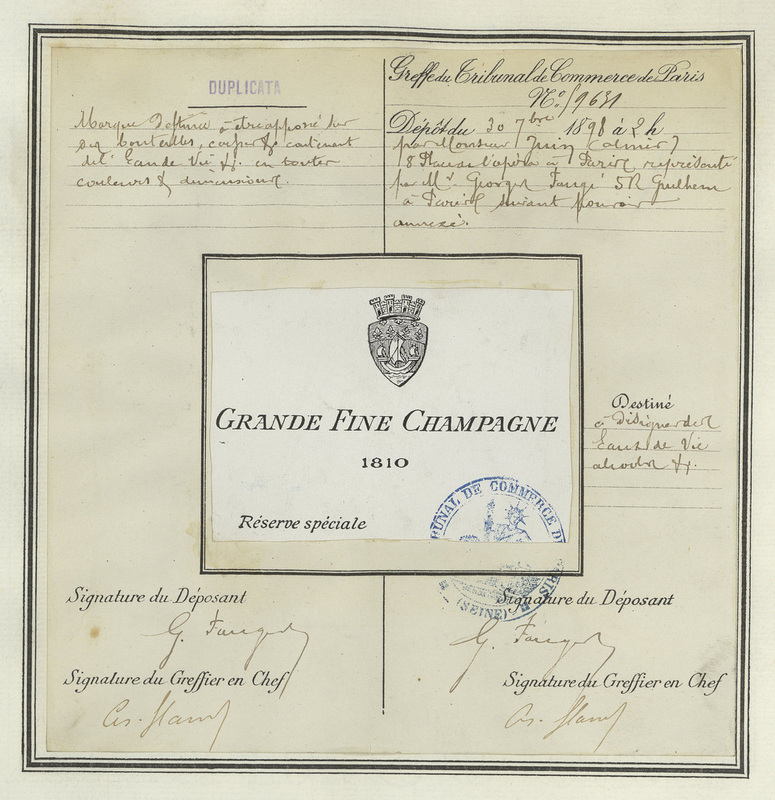 DUPLICATA
Marque destinée à être apposée sur
ses bouteilles, caisses &. contenant
des Eaux de Vie &. en toutes
couleurs & dimensions.
Greffe du Tribunal de Commerce de Paris
No. 59631
Dépôt du 30 7bre 1898 à 2 h
par Monsieur
8 Place de l'opéra à Paris représenté
par Mr. Georges Faugé 5 R
à Paris suivant pouvoir
annexé.
GRANDE FINE CHAMPAGNE
1810
Réserve spéciale
TRIBUNAL DE COMMERCE DE PARIS
(SEINE)
Destiné
à désigner des
Eaux de Vie
alcools &.
Signature du Déposant
Signature du Déposant
Signature du Greffier en Chef
Signature du Greffier en Chef